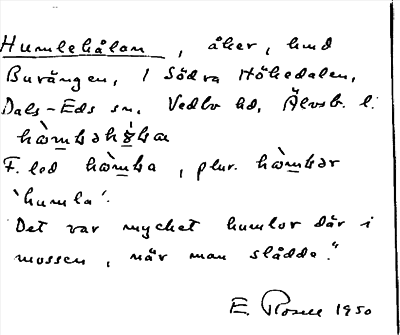 Humlehålan, åker, hmd
Burängen, 1 Södra Hökedalen,
Dals-Eds sn. Vedbo hd, Älvsb. l:
F. led hòmba, plur. hòmbər
`humla´.
"Det var mycket humlor där i
mossen, när man slådde."
E. Rosell 1950